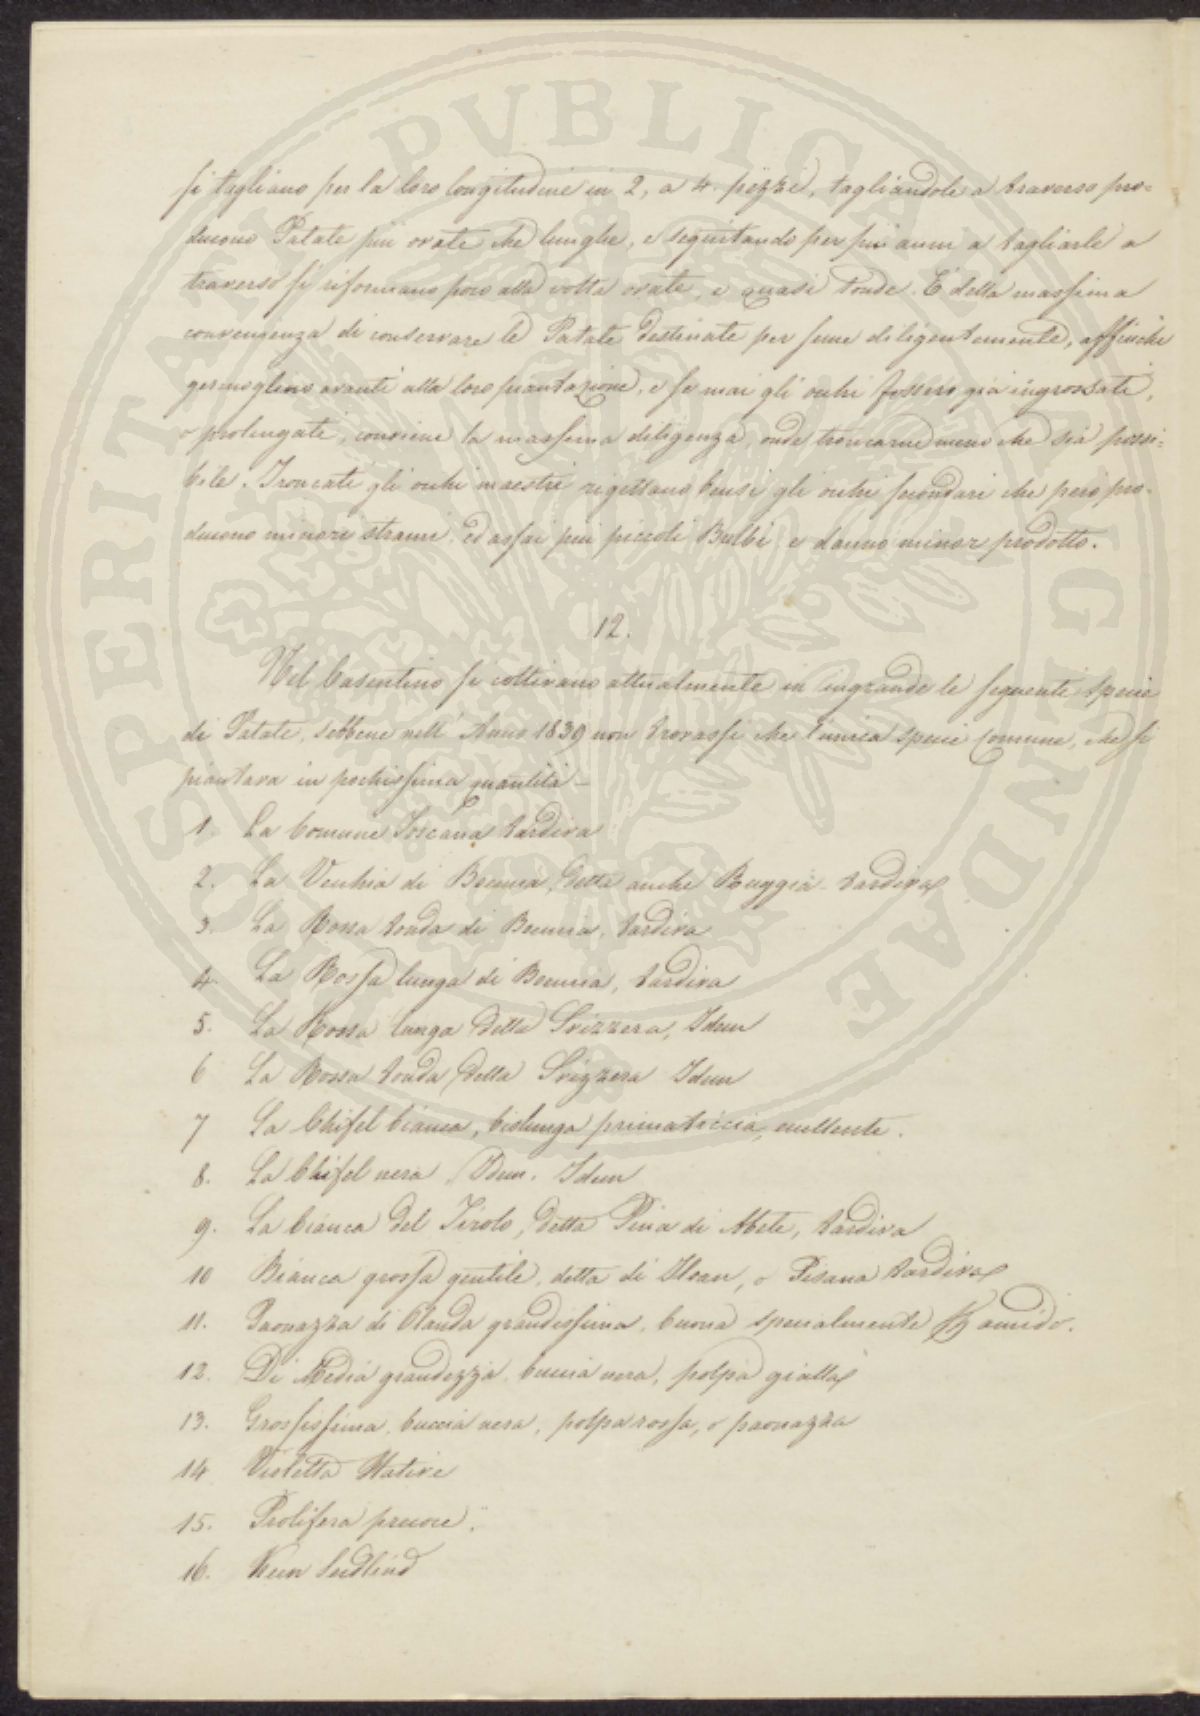 si tagliano per la loro longitudine in 2, a 4. pezzi, tagliandole a traverso pro-
ducono Patate più ovate che lunghe, e seguitando per più anni a tagliarle a
traverso si riformano poco alla volta ovate, e quasi tonde. È della massima
convenienza di conservare le Patate destinate per seme diligentemente, affinchè
germoglino avanti alla loro piantazione, e se mai gli occhi fossero già ingrossati,
o prolungati, conviene la massima diligenza, onde troncarne meno che sia possi-
bile. Troncati gli occhi maestri rigettano bensì gli occhi secondari che però pro-
ducono minori strami, ed assai più piccoli Bulbi, e danno minor prodotto.
12.
Nel Casentino si coltivano attualmente in ingrande le seguenti specie
di Patate, sebbene nell' Anno 1839 non trovassi che l'unica specie comune, che si
piantava in pochissima quantità -
1. La Comune Toscana tardiva
2. La Vecchia di Boemia, detta anche Ruggia tardiva
3. La Rossa tonda di Boemia, tardiva
4. La Rossa lunga di Boemia, tardiva
5. La Rossa lunga della Svizzera, Idem
6 La Rossa tonda della Svizzera Idem
7 La Chifel bianca, bislunga primaticcia, eccellente.
8. La Chifel nera Idem. Idem
9. La bianca del Tirolo, detta Pina di Abete, tardiva
10 Bianca grossa gentile, detta di, o Pisana tardiva
11. Paonazza di Olanda grandissima, buona specialmente p amido.
12. Di Media grandezza, buccia nera, polpa gialla
13. Grossissima, buccia nera, polpa rossa, o paonazza
14 Violetta Hative
15. Prolifera precoce.
16. Seedlind
PROSPERITATI PVBLICAE AVGENDAE